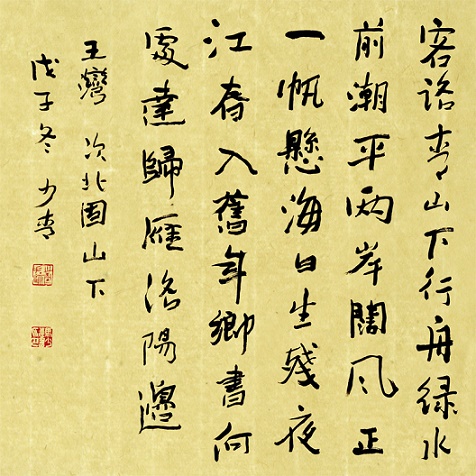 客路青山下行舟綠水
前潮平两岸闊风正
一帆懸海日生殘夜
江春入舊年鄉書何
處達歸雁洛陽邊
王灣 次北固山下
戊子冬 少青